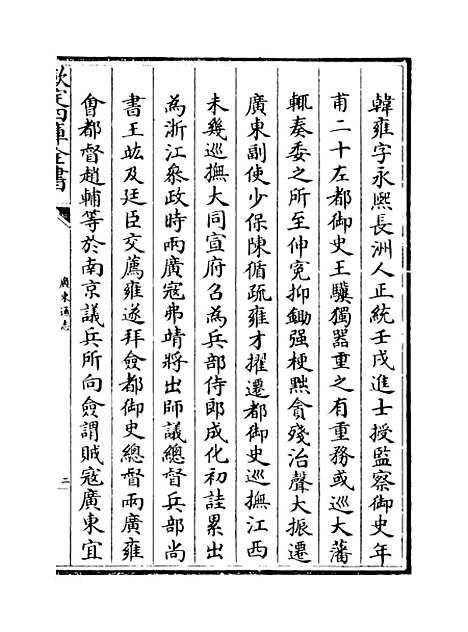 韓雍字永熙長洲人正統壬戌進士授監察御史年
甫二十左都御史王驥獨器重之有重務或巡大藩
輒奏委之所至伸寃抑鋤强梗黜貪殘治聲大振遷
廣東副使少保陳循疏雍才擢遷都御史巡撫江西
未幾巡撫大同宣府召為兵部侍郎成化初詿累出
為浙江叅政時兩廣寇弗靖將出師議總督兵部尚
書王竑及廷臣交薦雍遂拜僉都御史總督兩廣雍
會都督趙輔等於南京議兵所向僉謂賊寇廣東宜
欽定四庫全書
廣東通志
二